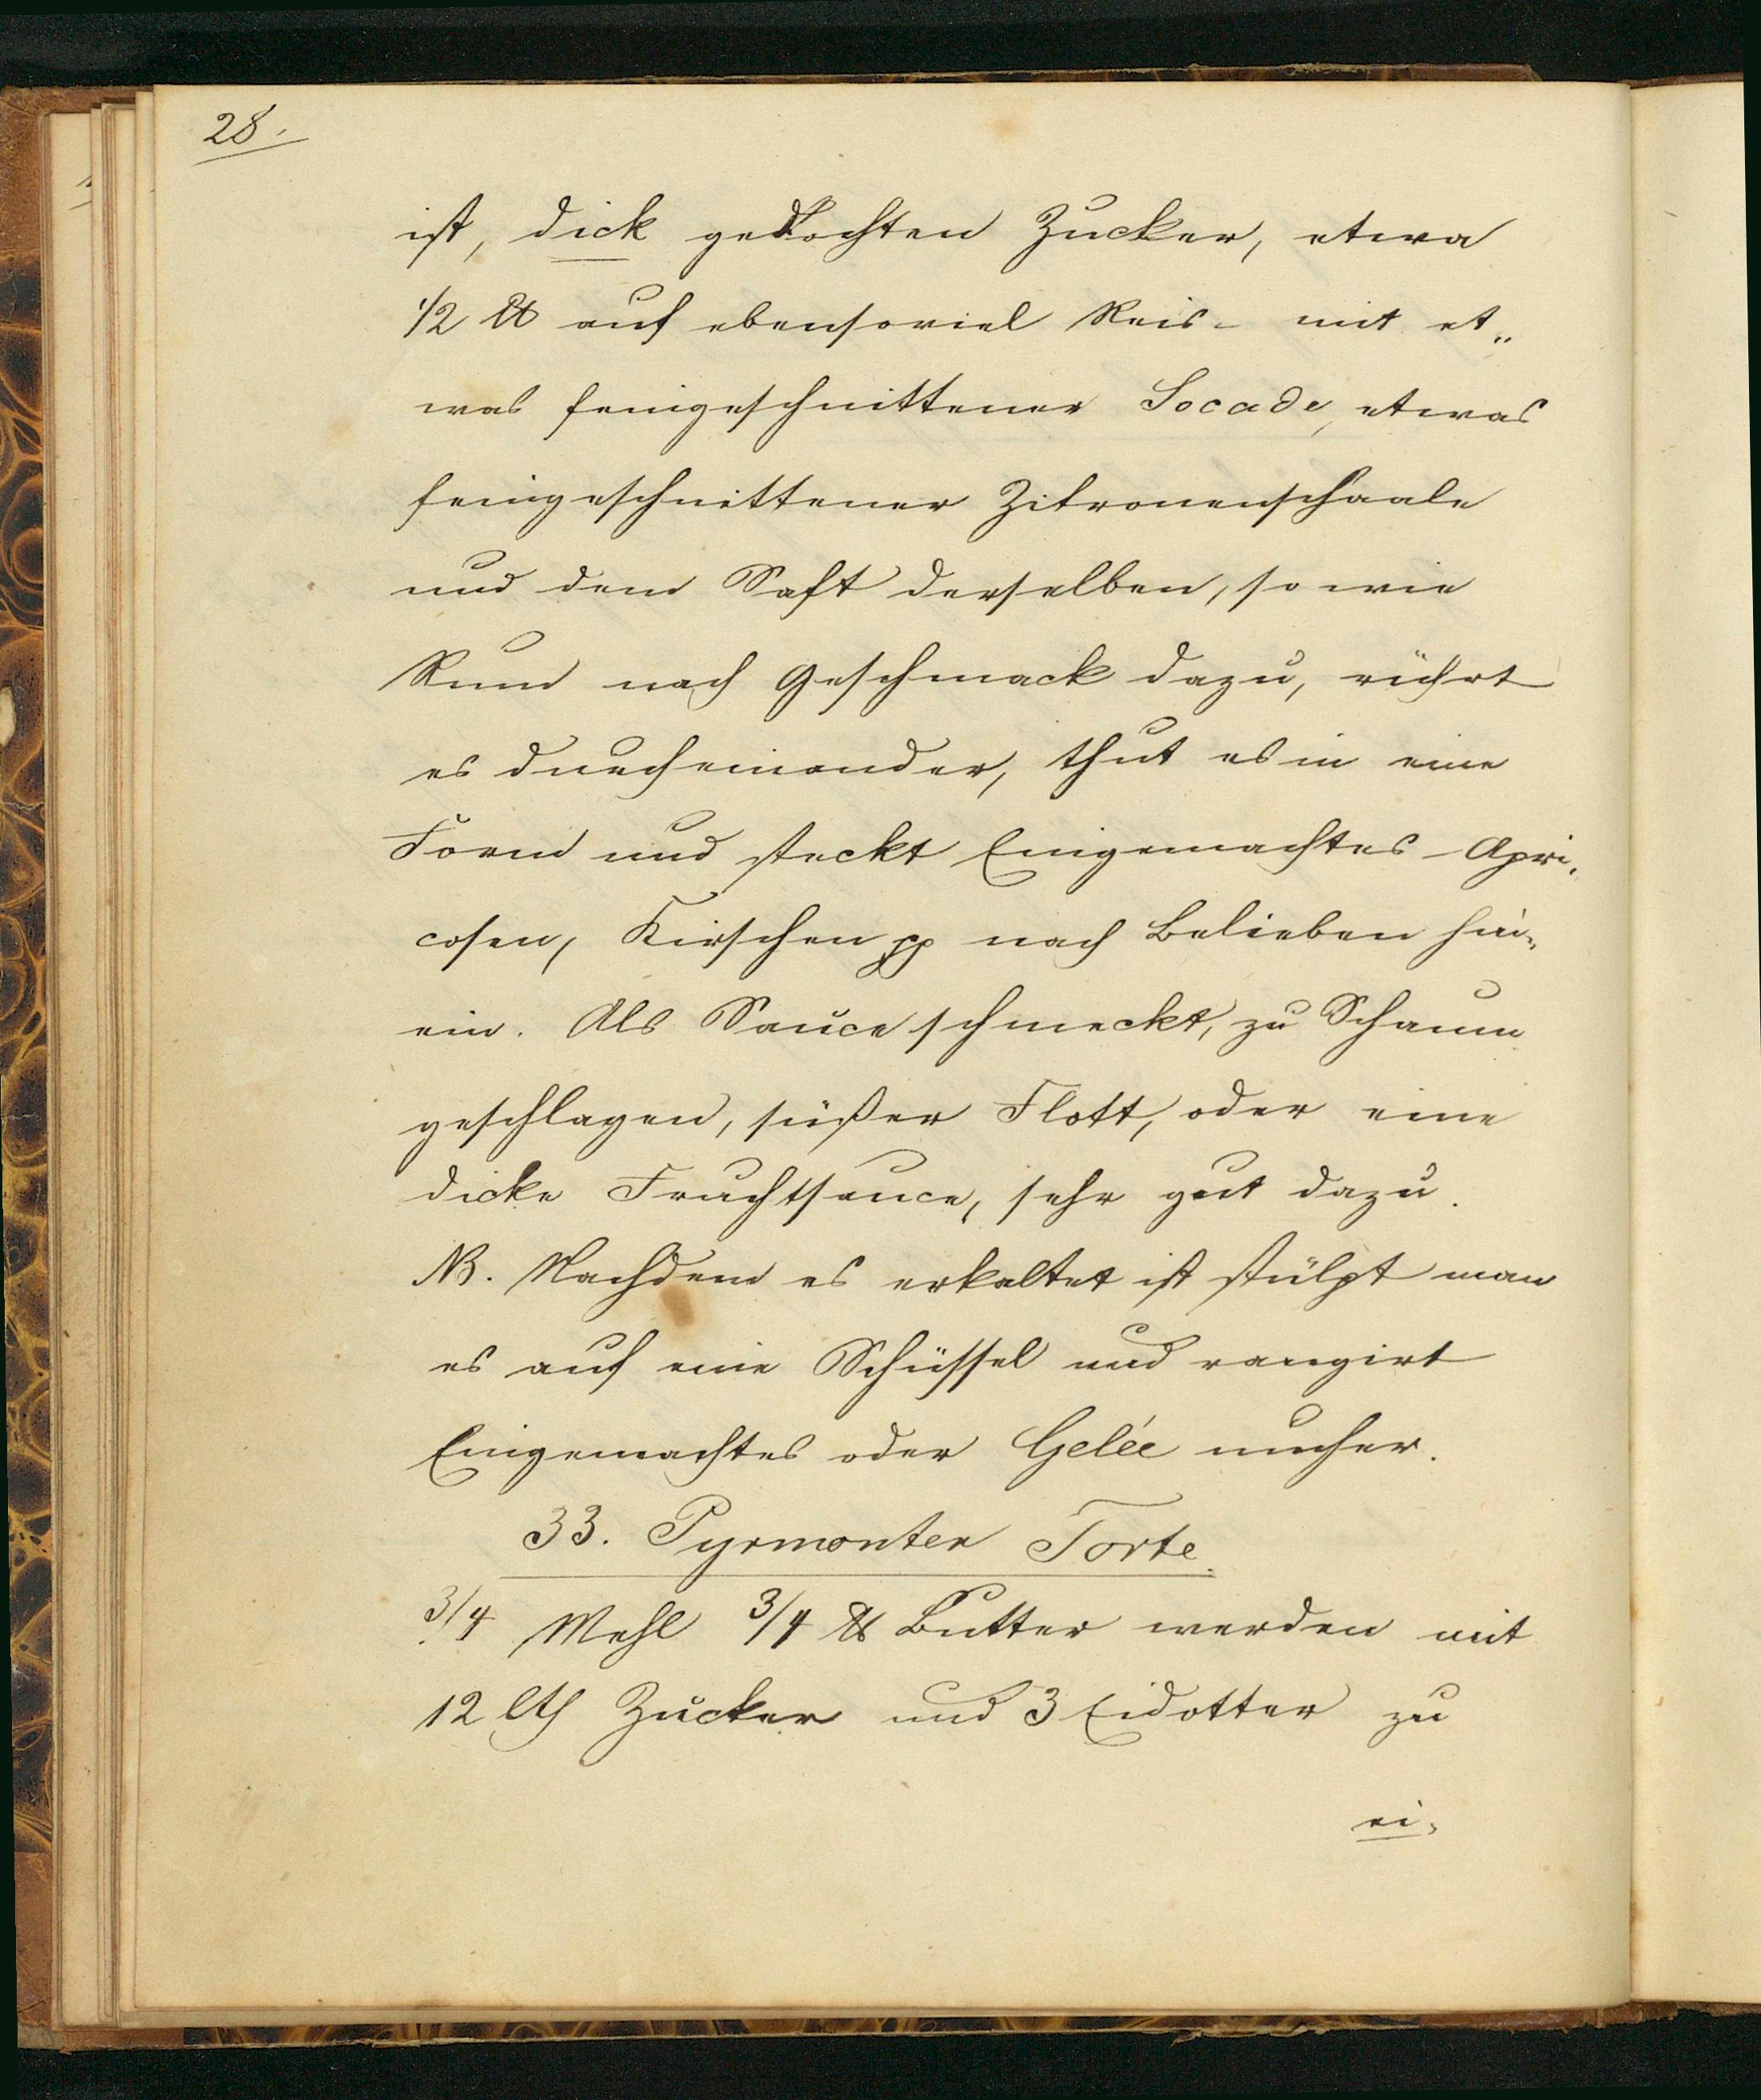 28.
ist, dick gekochten Zucker, etwa
1/2 ℔ auf ebensoviel Reis - mit et„
was feingeschnittener Socade, etwas
feingeschnittener Zitronenschaale
und dem Saft derselben, so wie
Rum nach Geschmack dazu, rührt
es durcheinander, thut es in eine
Form und steckt Eingemachtes - Apri„
cosen, Kirschen pp nach Belieben hin„
ein. Als Sauce schmeckt, zu Schaum
geschlagen, süßer Flott, oder eine
dicke Fruchtsauce, sehr gut dazu.
NB. Nachdem es erkaltet ist stülpt man
es auf eine Schüssel und rangirt
Eingemachtes oder Gelée umher.
33. Pyrmonter Torte.
3/4 Mehl 3/4 ℔ Butter werden mit
12 lth Zucker und 3 Eidotter zu
ei„